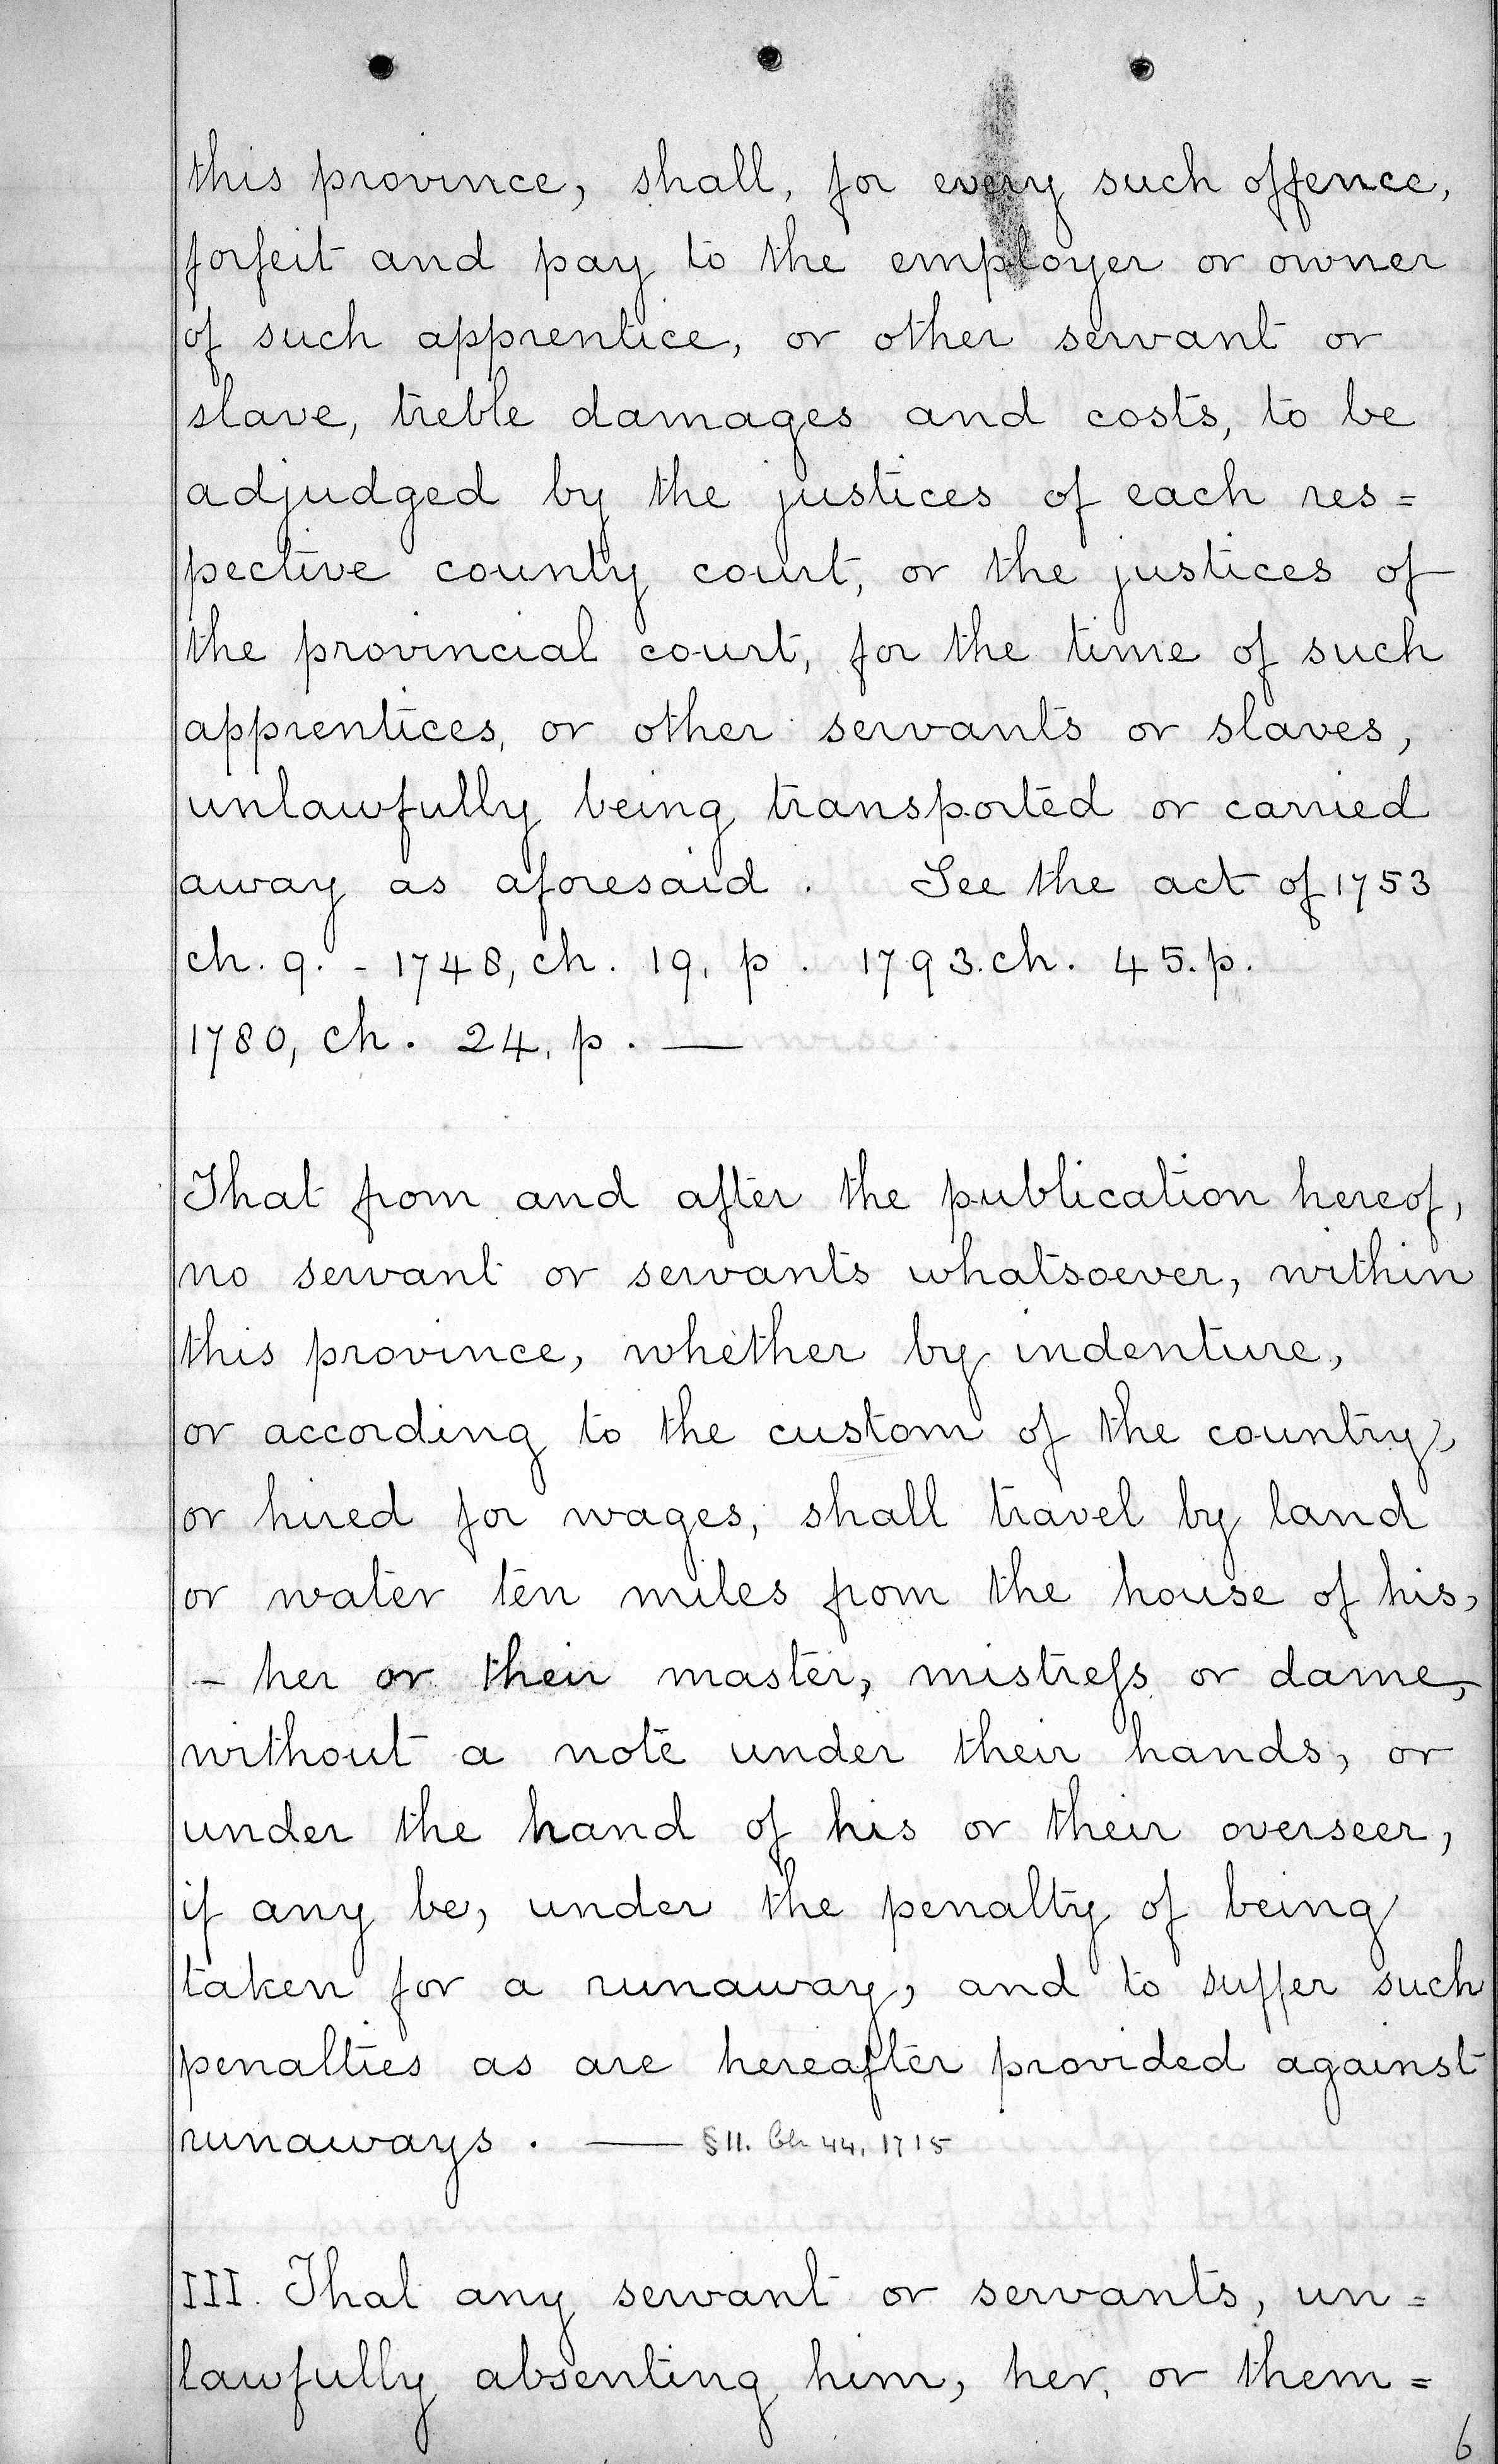 this province, shall, for every such offence,
forfeit and pay to the employer or owner
of such apprentice, or other servant or
slave, treble damages and costs, to be
adjudged by the justices of each res=
pective county court, or the justices of
the provincial court, for the time of such
apprentices, or other servants or slaves,
unlawfully being transported or carried
away as aforesaid. See the act of 1753
ch. 9. - 1748, ch. 19, p. 1793. ch. 45. p.
1780, ch. 24, p. —
That from and after the publication hereof,
no servant or servants whatsoever, within
this province, whether by indenture,
or according to the custom of the country,
or hired for wages, shall travel by land
or water ten miles from the house of his,
- her or their master, mistreſs or dame,
without a note under their hands, or
under the hand of his or their overseer,
if any be, under the penalty of being
taken for a runaway, and to suffer such
penalties as are hereafter provided against
runaways. — § II. Ch 44, 1715
III. That any servant or servants, un=
lawfully absenting him, her, or them=
6